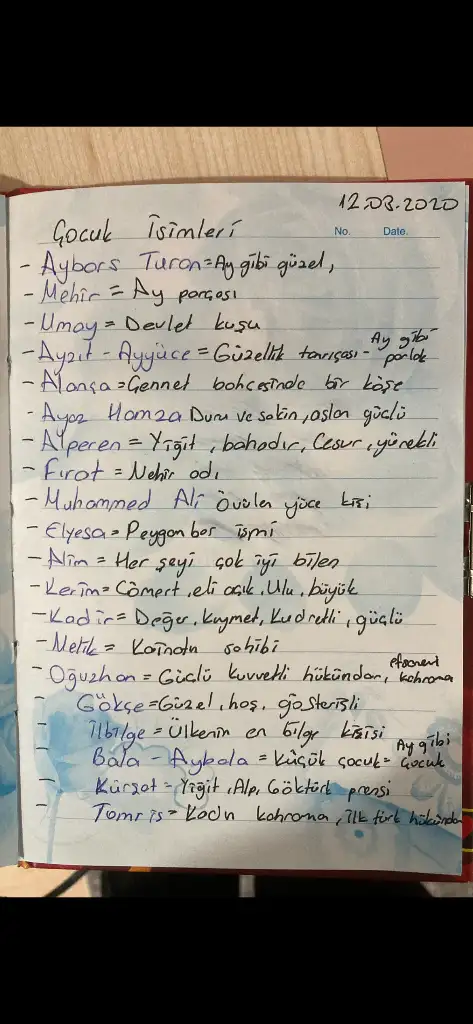 12.03.2020
Çocuk İsimleri
No. Date.
- Aybars Turan = Ay gibi güzel,
- Mehir = Ay parçası
- Umay = Devlet kuşu
- Ayzıt - Ayyüce = Güzellik tanrıçası - Ay gibi parlak
- Alança = Cennet bahçesinde bir köşe
- Ayaz Hamza Duru ve sakin, aslan güçlü
- Alperen = Yiğit, bahadır, Cesur, yürekli
- Fırat = Nehir adı
- Muhammed Ali Övülen yüce kişi
- Elyesa = Peygamber ismi
- Alim = Her şeyi çok iyi bilen
- Kerim = Cömert, eli açık, Ulu, büyük
- Kadir = Değer, kıymet, Kudretli, güçlü
- Melik = Kainatın sahibi
- Oğuzhan = Güçlü kuvvetli hükümdar, efsanevi kahrama
- Gökçe = Güzel, hoş, gösterişli
- İlbilge = Ülkenin en bilge kişisi
- Bala - Aybala = Küçük çocuk = Ay gibi Çocuk
- Kürşat = Yiğit, Alp, Göktürk prensi
- Tomris = Kadın kahrama, ilk türk hükümda